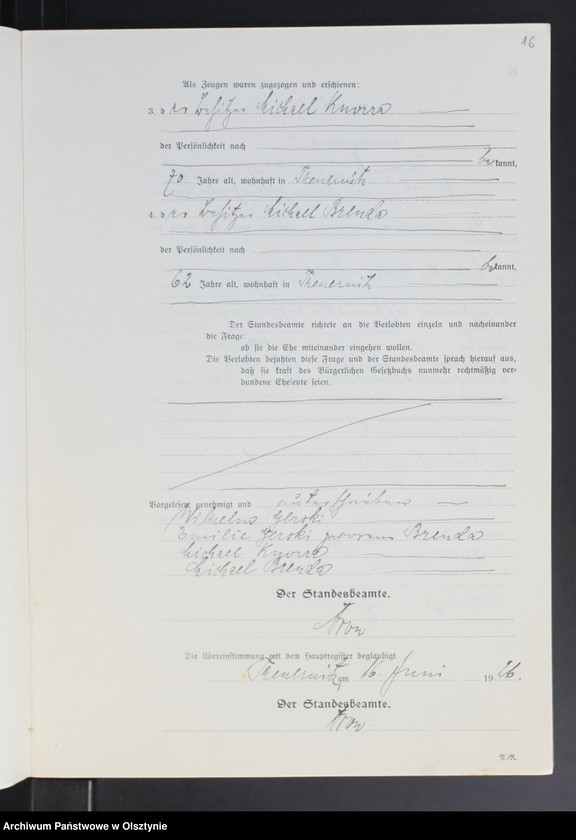 16
Als Zeugen waren zugezogen und erschienen:
3. der Besitzer Michael Knorra
der Persönlichkeit nach
bekannt,
70 Jahre alt, wohnhaft in
4. der Besitzer Michael Brenda
der Persönlichkeit nach
bekannt,
62 Jahre alt, wohnhaft in
Der Standesbeamte richtete an die Verlobten einzeln und nacheinander
die Frage:
ob sie die Ehe miteinander eingehen wollen.
Die Verlobten bejahten diese Frage und der Standesbeamte sprach hierauf aus,
daß sie kraft des Bürgerlichen Gesetzbuchs nunmehr rechtmäßig ver-
bundene Eheleute seien.
Vorgelesen, genehmigt und unterschrieben
Wilhelm Jeroki
Emilie Jeroki geborene Brenda
Michael Knorra
Michael Brenda
Der Standesbeamte.
Die Übereinstimmung mit dem Hauptregister beglaubigt
am 16. Juni 1926.
Der Standesbeamte.
Archiwum Państwowe w Olsztynie